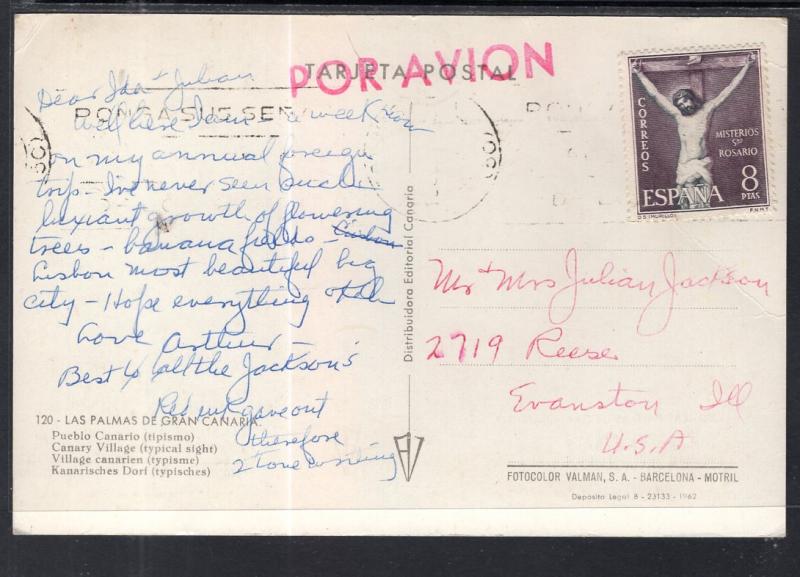 TARJETA POSTAL
POR AVION
Dear Ida & Julian
Well here I am - a week now
on my annual foreign
trip - I've never seen such
luxuriant growth of flowering
trees - banana fields - Lisbon
Lisbon most beautiful big
city - Hope everything ok
Love Arthur -
Best to all the Jackson's
Red ink gave out
therefore
2 tone writing
120 - LAS PALMAS DE GRAN CANARIA.
Pueblo Canario (tipismo)
Canary Village (typical sight)
Village canarien (typisme)
Kanarisches Dorf (typisches)
Distribuidora Editorial Canaria
CORREOS
MISTERIOS
Sto
ROSARIO
ESPAÑA 8
PTAS
F.N.M.T.
Mr & Mrs Julian Jackson
2719 Reese
Evanston Ill
U.S.A
FOTOCOLOR VALMAN, S. A. - BARCELONA - MOTRIL
Deposito Legal B - 23133 - 1962